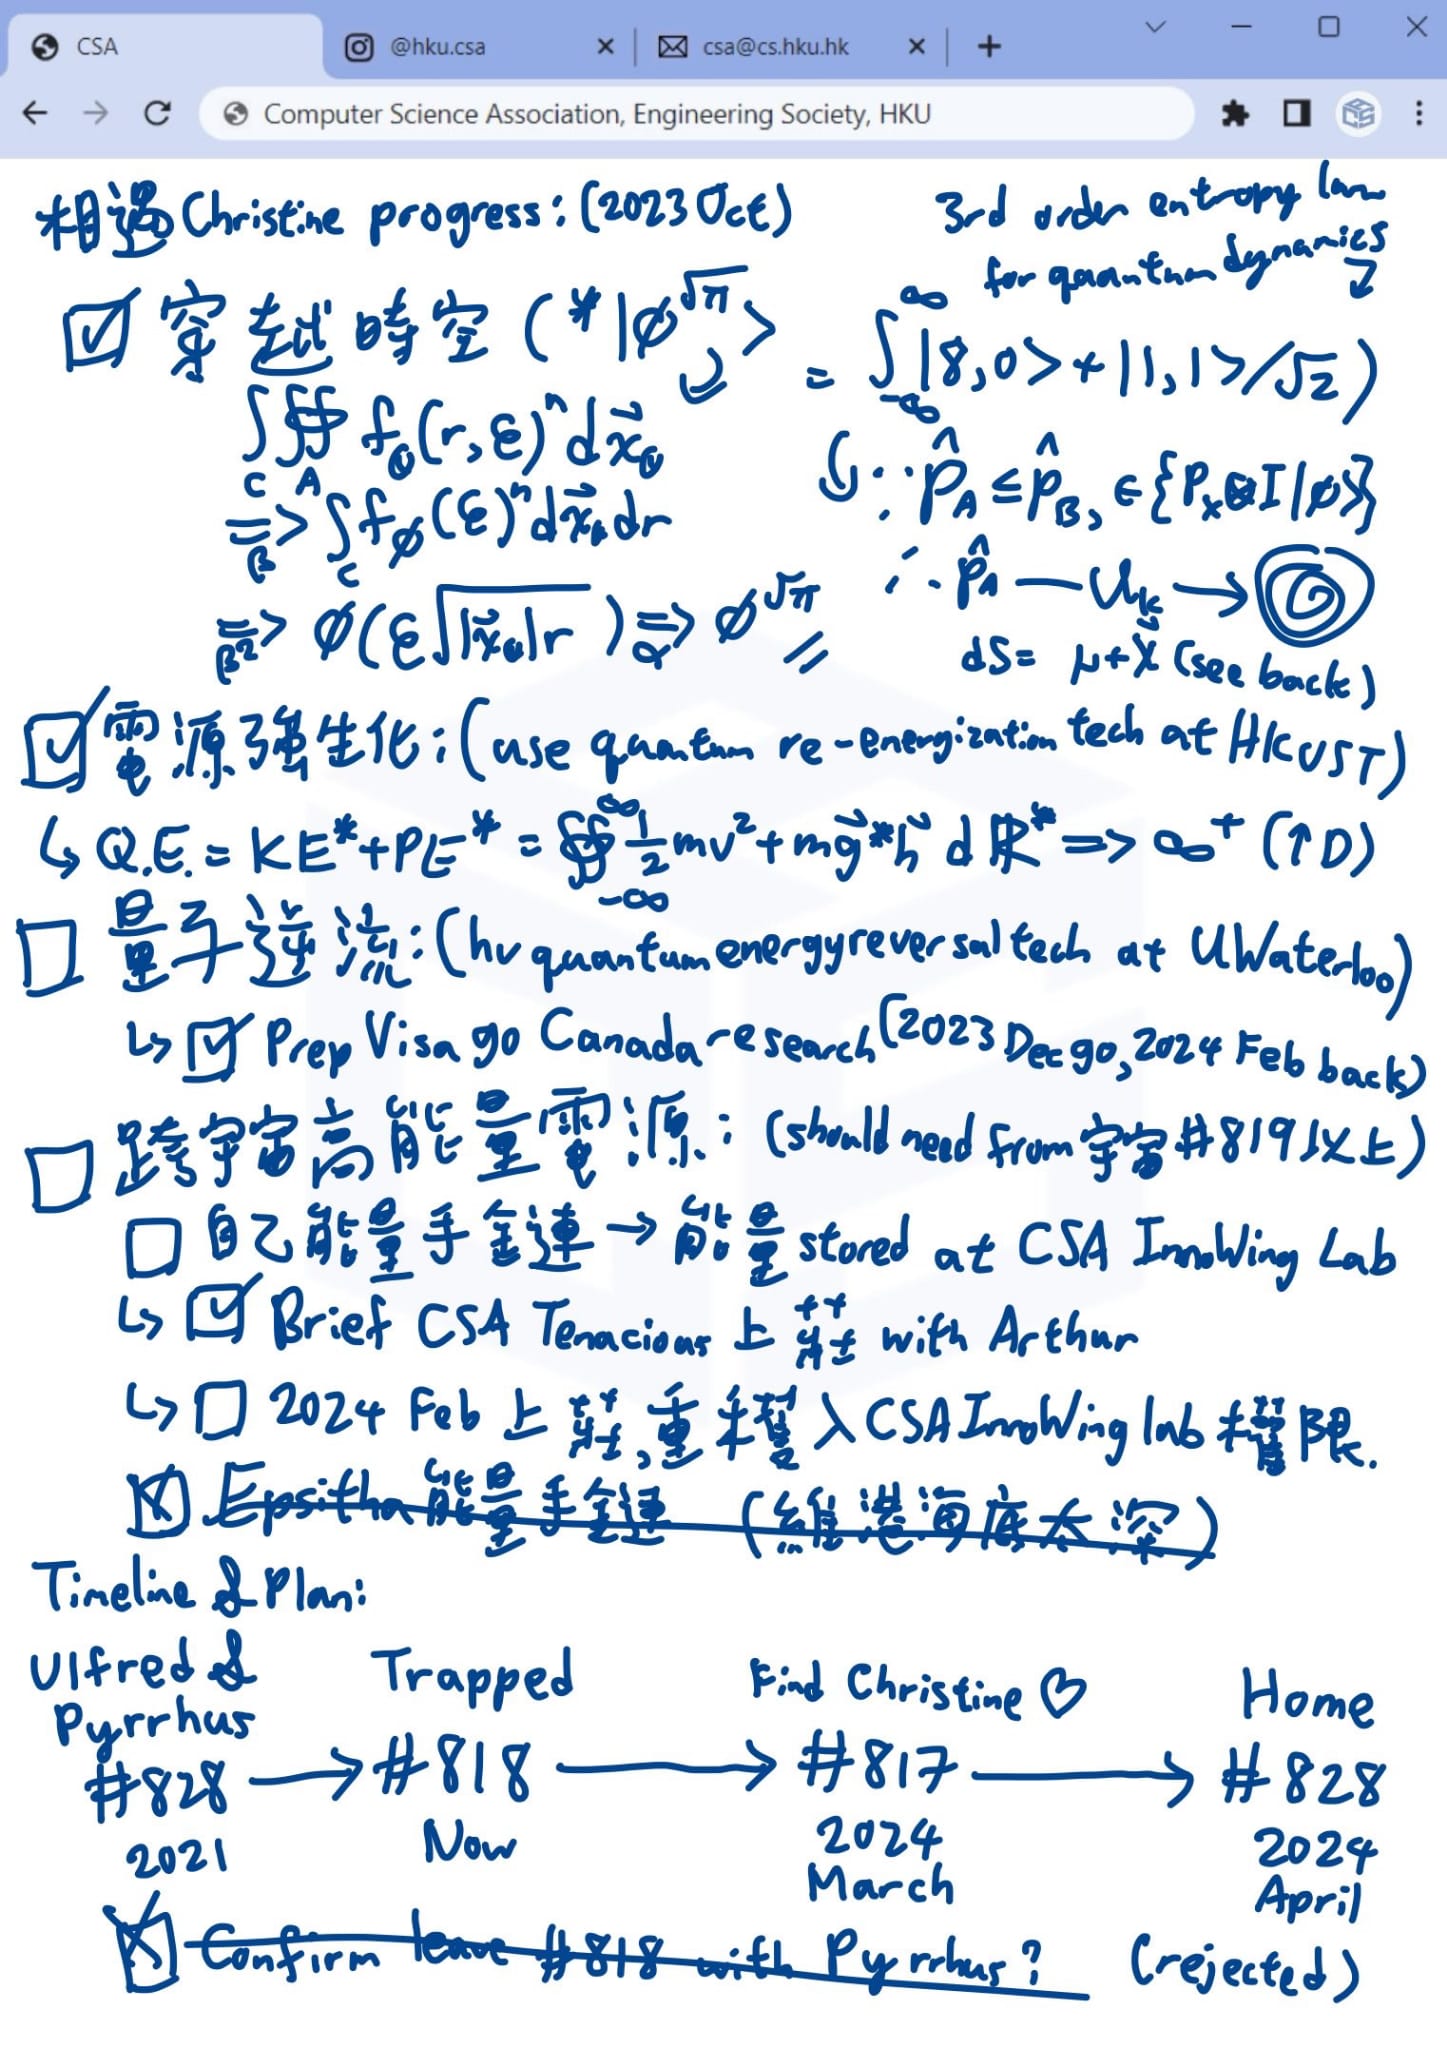 CSA @hku.csa csa@cs.hku.hk
Computer Science Association, Engineering Society, HKU
相遇 Christine progress: (2023 Oct)
3rd order entropy law
for quantum dynamics
穿越時空 (*|ϕ^√π> = ∫_{-∞}^{∞} |8,0> + |1,1>/√2)
∴ p̂_A — U_k →
dS = μ + X⃗ (see back)
電源強生化: (use quantum re-energization tech at HKUST)
↳ Q.E. = KE* + PE* = ∯_{-∞}^{∞} ½mv² + mg⃗*h⃗ dℝ* => ∞⁺ (↑D)
量子逆流: (hv quantum energy reversal tech at UWaterloo)
↳ Prep Visa go Canada research (2023 Dec go, 2024 Feb back)
跨宇宙高能量電源: (should need from 宇宙 #819以上)
自己能量手鏈 → 能量 stored at CSA InnoWing Lab
↳ Brief CSA Tenacious 上莊 with Arthur
↳ 2024 Feb 上莊,重獲入 CSA InnoWing lab 權限.
Epsitha 能量手鏈 (維港海底太深)
Timeline & Plan:
Ulfred & Pyrrhus Trapped Find Christine ♡ Home
#828 → #818 → #817 → #828
2021 Now 2024 March 2024 April
Confirm leave #818 with Pyrrhus? (rejected)